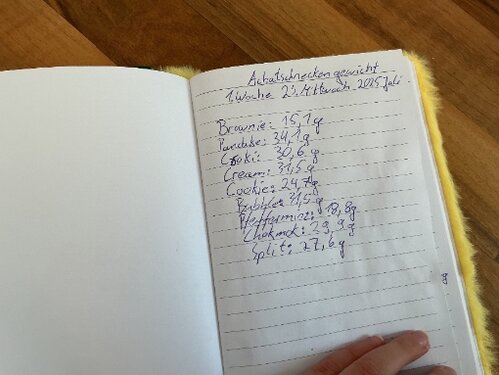 Achatschneckengewicht
1. Woche 23. Mittwoch 2025 Juli
Brownie: 15,1 g
34,1 g
Cooki: 30,6 g
Cream: 31,5 g
Cookie: 24,7 g
Bubble: 31,5 g
Pfefferminz: 18,8 g
29,9 g
Split: 27,6 g